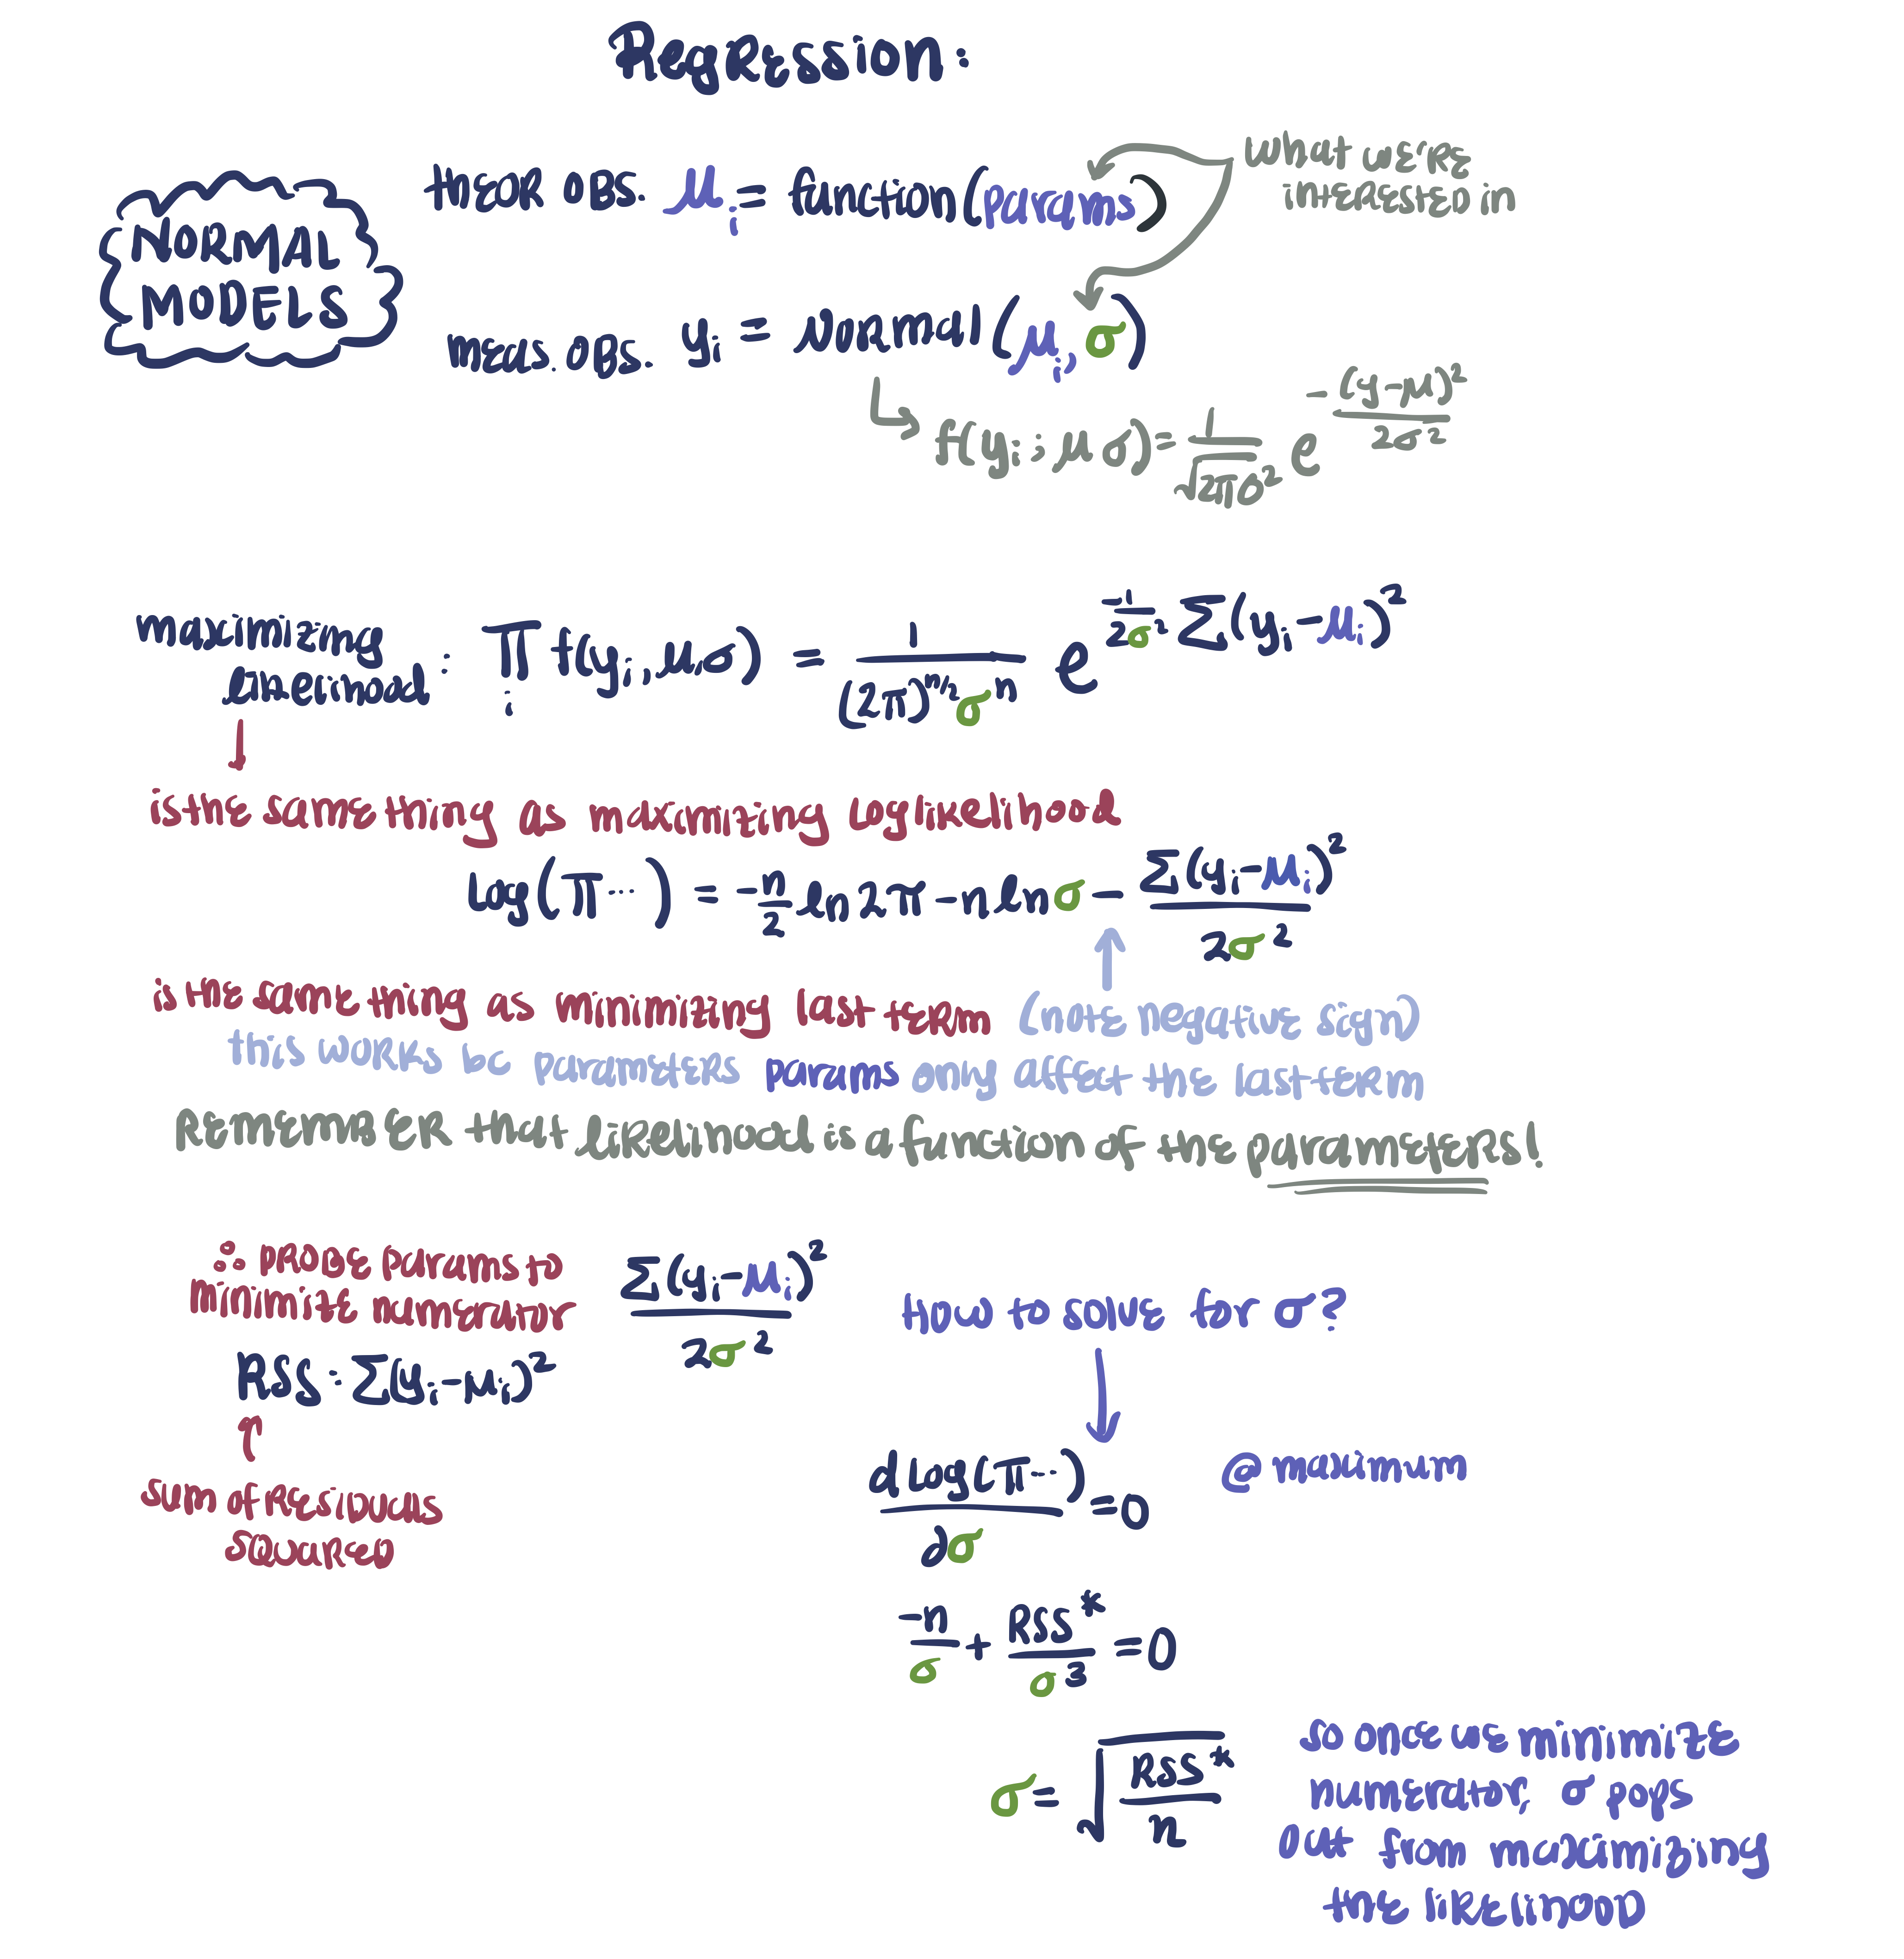 Regression:
NORMAL
MODELS
theor obs. μᵢ = function(params)
what we're
interested in
meas. obs. yᵢ = Normal(μᵢ, σ)
f(yᵢ; μ σ) = 1/√(2πσ²) e^(-(y-μ)²/2σ²)
maximizing
likelihood : ∏ᵢ f(yᵢ, μ, σ) = 1/((2π)^(n/2) σⁿ) e^(-1/2σ² Σ(yᵢ-μᵢ)²)
is the same thing as maximizing loglikelihood
Log(∏...) = -n/2 ln2π - n lnσ - Σ(yᵢ-μᵢ)²/2σ²
is the same thing as minimizing last term (note negative sign)
this works bc parameters params only affect the last term
Remember that likelihood is a function of the parameters!
∴ probe params to
minimize numerator
Σ(yᵢ-μᵢ)²/2σ²
RSS: Σ(yᵢ-μᵢ)²
sum of residuals
squared
How to solve for σ?
d Log(∏...)/dσ = 0 @ maximum
-n/σ + RSS*/σ³ = 0
σ = √(RSS*/n)
so once we minimize
numerator, σ pops
out from maximizing
the likelihood